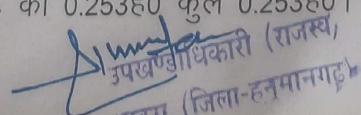 का 0.253हे0 कुल 0.253हे0।
उपखण्डाधिकारी (राजस्व)
(जिला-हनुमानगढ़)